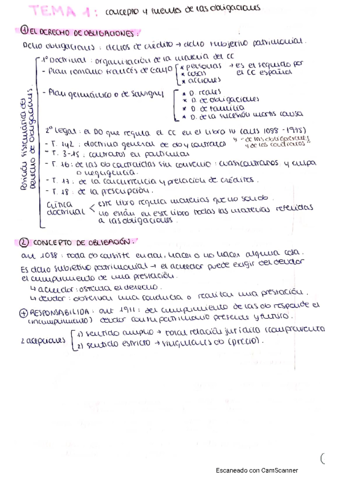 TEMA 1: concepto y fuentes de las obligaciones
① EL DERECHO DE OBLIGACIONES
Dcho obligaciones: dchos de crédito → dcho subjetivo patrimonial.
Posición sistemática del derecho de obligaciones
1º Doctrinal: organización de la materia del CC
- Plan romano francés de Gayo
* personas
* cosas
* acciones
→ es el seguido por el CC español
- Plan germánico o de Savigny
* D. reales
* D. de obligaciones
* D. de familia
* D. de la sucesión mortis causa
2º Legal: el DO que regula el CC en el libro IV (arts 1088 - 1975)
- T. 1 y 2: doctrina general de do y contratos
- de las obligaciones
- de los contratos
- T. 3-15: contratos en particular
- T. 16: de las ob contraídas sin convenio: cuasicontratos y culpa o negligencia.
- T. 17: de la concurrencia y prelación de créditos.
- T. 18: de la prescripción.
Crítica doctrinal
este libro regula materias que no son do
no están en este libro todas las materias referidas a las obligaciones
② CONCEPTO DE OBLIGACIÓN
Art 1088: toda ob consiste en dar, hacer o no hacer alguna cosa.
Es dcho subjetivo patrimonial → el acreedor puede exigir del deudor
el cumplimiento de una prestación.
↳ acreedor: ostenta el derecho.
↳ deudor: observar una conducta o realizar una prestación.
④ RESPONSABILIDAD: art 1911: del cumplimiento de las ob responde el
(incumplimiento) deudor con su patrimonio presente y futuro.
2 acepciones
1) sentido amplio → total relación jurídica (compraventa)
2) sentido estricto → singulares ob (precio).
Escaneado con CamScanner